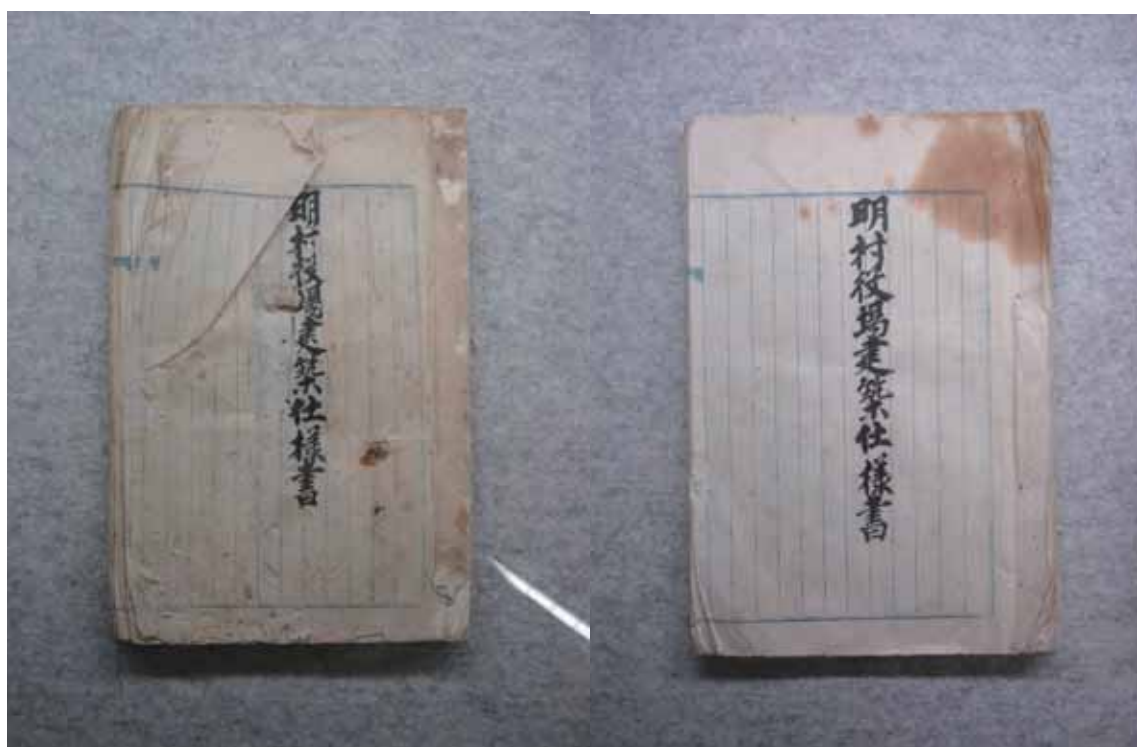 明村役場建築仕様書
明村役場建築仕様書